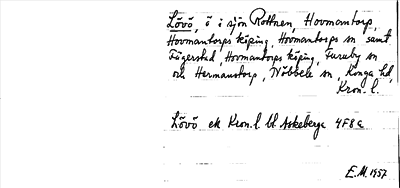 Lövö, ö i sjön Rottnen, Hovmantorp,
Hovmantorps köping, Hovmantorps sn samt
Fägerstad, Hovmantorps köping, Furuby sn
och Hermanstorp, Nöbbele sn, Konga hd,
Kron. l.
Lövö ek Kron. l bl Askeberga 4F8c
E.M. 1957